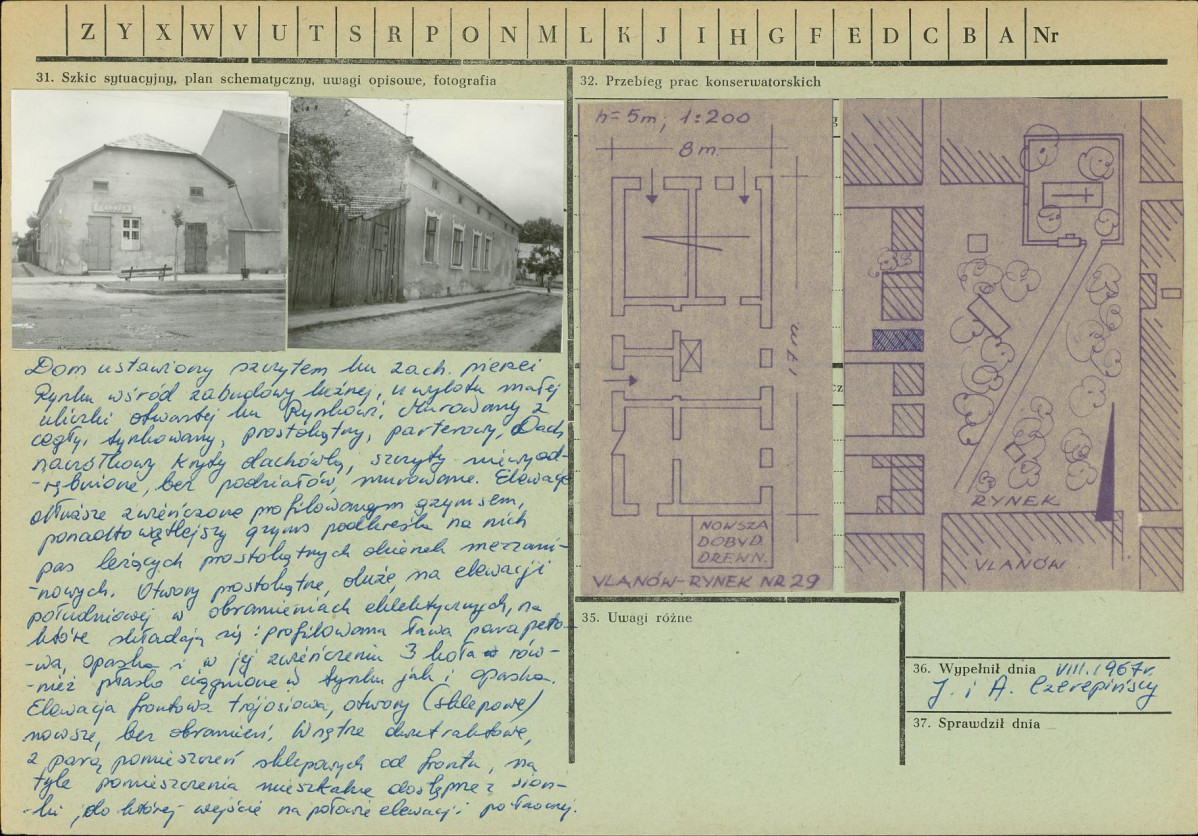 Z Y X W V U T S R P O N M L K J I H G F E D C B A Nr
31. Szkic sytuacyjny, plan schematyczny, uwagi opisowe, fotografia
Dom ustawiony szczytem ku zach. pierzei
Rynku wśród zabudowy luźnej, u wylotu małej
uliczki otwartej ku Rynkowi. Murowany z
cegły, tynkowany, prostokątny, parterowy. Dach
naczółkowy kryty dachówką, szczyty niewyod-
-rębnione, bez podziałów, murowane. Elewacje
dłuższe zwieńczone profilowanym gzymsem,
ponadto wątlejszy gzyms podkreśla na nich
pas leżących prostokątnych okienek mezzani-
-nowych. Otwory prostokątne, duże na elewacji
południowej w obramieniach eklektycznych, na
które składają się: profilowana ława parapeto-
-wa, opaska i w jej zwieńczeniu 3 koła rów-
-nież płasko ciągnione w tynku jak i opaska.
Elewacja frontowa trójosiowa, otwory (sklepowe)
nowsze, bez obramień. Wnętrze dwutraktowe,
z parą pomieszczeń sklepowych od frontu, na
tyle pomieszczenia mieszkalne dostępne z sion-
-ki, do której wejście na połowie elewacji północnej.
32. Przebieg prac konserwatorskich
h = 5m; 1:200
8 m.
NOWSZA
DOBUD.
DREWN.
VLANÓW-RYNEK NR 29
RYNEK
VLANÓW
35. Uwagi różne
36. Wypełnił dnia VIII.1967r.
J. i A. Czerepińscy
37. Sprawdził dnia